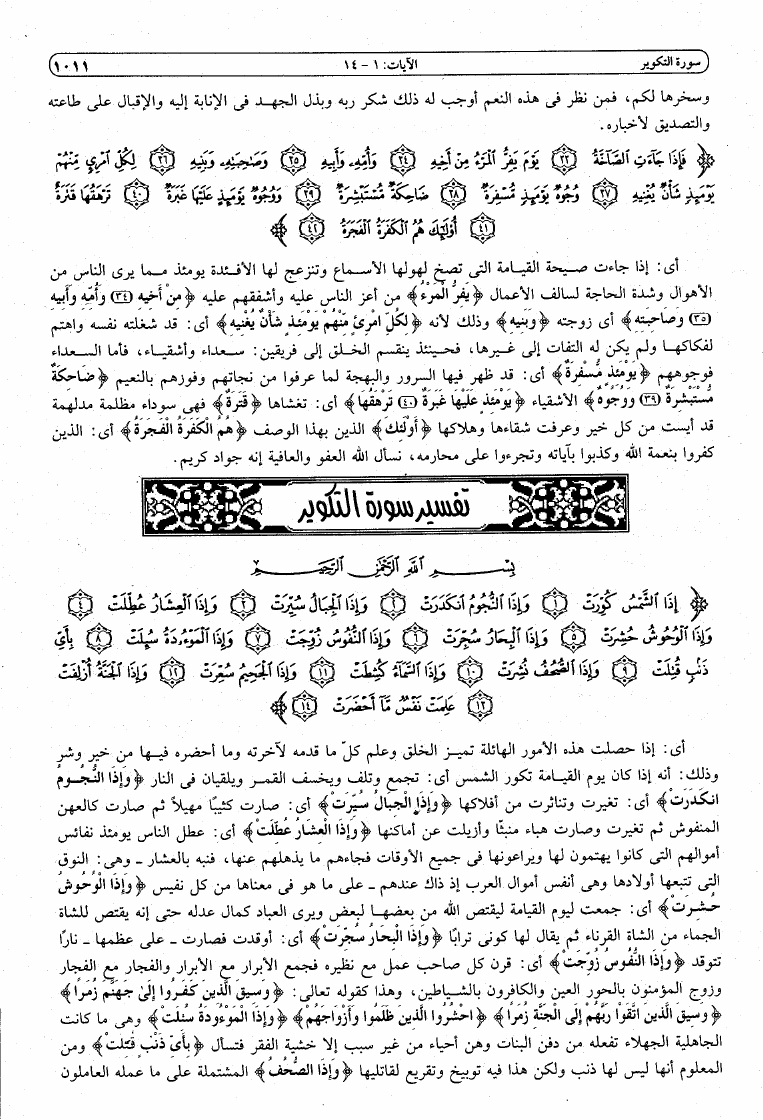 سورة التكوير الآيات: ١ - ١٤ ١٠١١
وسخرها لكم، فمن نظر فى هذه النعم أوجب له ذلك شكر ربه وبذل الجهد فى الإنابة إليه والإقبال على طاعته
والتصديق لأخباره.
﴿ فَإِذَا جَاءَتِ الصَّاخَّةُ (٣٣) يَوْمَ يَفِرُّ الْمَرْءُ مِنْ أَخِيهِ (٣٤) وَأُمِّهِ وَأَبِيهِ (٣٥) وَصَاحِبَتِهِ وَبَنِيهِ (٣٦) لِكُلِّ امْرِئٍ مِنْهُمْ
يَوْمَئِذٍ شَأْنٌ يُغْنِيهِ (٣٧) وُجُوهٌ يَوْمَئِذٍ مُسْفِرَةٌ (٣٨) ضَاحِكَةٌ مُسْتَبْشِرَةٌ (٣٩) وَوُجُوهٌ يَوْمَئِذٍ عَلَيْهَا غَبَرَةٌ (٤٠) تَرْهَقُهَا قَتَرَةٌ
(٤١) أُولَٰئِكَ هُمُ الْكَفَرَةُ الْفَجَرَةُ (٤٢) ﴾
أى: إذا جاءت صيحة القيامة التى تصخ لهولها الأسماع وتنزعج لها الأفئدة يومئذ مما يرى الناس من
الأهوال وشدة الحاجة لسالف الأعمال ﴿يَفِرُّ الْمَرْءُ﴾ من أعز الناس عليه وأشفقهم عليه ﴿مِنْ أَخِيهِ (٣٤) وَأُمِّهِ وَأَبِيهِ
(٣٥) وَصَاحِبَتِهِ﴾ أى زوجته ﴿وَبَنِيهِ﴾ وذلك لأنه ﴿لِكُلِّ امْرِئٍ مِّنْهُمْ يَوْمَئِذٍ شَأْنٌ يُغْنِيهِ﴾ أى: قد شغلته نفسه واهتم
لفكاكها ولم يكن له التفات إلى غيرها، فحينئذ ينقسم الخلق إلى فريقين: سعداء وأشقياء، فأما السعداء
فوجوههم ﴿يَوْمَئِذٍ مُّسْفِرَةٌ﴾ أى: قد ظهر فيها السرور والبهجة لما عرفوا من نجاتهم وفوزهم بالنعيم ﴿ضَاحِكَةٌ
مُّسْتَبْشِرَةٌ (٣٩) وَوُجُوهٌ﴾ الأشقياء ﴿يَوْمَئِذٍ عَلَيْهَا غَبَرَةٌ (٤٠) تَرْهَقُهَا﴾ أى: تغشاها ﴿قَتَرَةٌ﴾ فهى سوداء مظلمة مدلهمة
قد أيست من كل خير وعرفت شقاءها وهلاكها ﴿أُولَٰئِكَ﴾ الذين بهذا الوصف ﴿هُمُ الْكَفَرَةُ الْفَجَرَةُ﴾ أى: الذين
كفروا بنعمة الله وكذبوا بآياته وتجرءوا على محارمه، نسأل الله العفو والعافية إنه جواد كريم.
تفسير سورة التكوير
بِسْمِ اللَّهِ الرَّحْمَٰنِ الرَّحِيمِ
﴿ إِذَا الشَّمْسُ كُوِّرَتْ (١) وَإِذَا النُّجُومُ انْكَدَرَتْ (٢) وَإِذَا الْجِبَالُ سُيِّرَتْ (٣) وَإِذَا الْعِشَارُ عُطِّلَتْ (٤)
وَإِذَا الْوُحُوشُ حُشِرَتْ (٥) وَإِذَا الْبِحَارُ سُجِّرَتْ (٦) وَإِذَا النُّفُوسُ زُوِّجَتْ (٧) وَإِذَا الْمَوْءُودَةُ سُئِلَتْ (٨) بِأَيِّ
ذَنْبٍ قُتِلَتْ (٩) وَإِذَا الصُّحُفُ نُشِرَتْ (١٠) وَإِذَا السَّمَاءُ كُشِطَتْ (١١) وَإِذَا الْجَحِيمُ سُعِّرَتْ (١٢) وَإِذَا الْجَنَّةُ أُزْلِفَتْ
(١٣) عَلِمَتْ نَفْسٌ مَّا أَحْضَرَتْ (١٤) ﴾
أى: إذا حصلت هذه الأمور الهائلة تميز الخلق وعلم كلّ ما قدمه لآخرته وما أحضره فيها من خير وشر
وذلك: أنه إذا كان يوم القيامة تكور الشمس أى: تجمع وتلف ويخسف القمر ويلقيان فى النار ﴿وَإِذَا النُّجُومُ
انكَدَرَتْ﴾ أى: تغيرت وتناثرت من أفلاكها ﴿وَإِذَا الْجِبَالُ سُيِّرَتْ﴾ أى: صارت كثيبًا مهيلاً ثم صارت كالعهن
المنفوش ثم تغيرت وصارت هباء منبثًا وأزيلت عن أماكنها ﴿وَإِذَا الْعِشَارُ عُطِّلَتْ﴾ أى: عطل الناس يومئذ نفائس
أموالهم التى كانوا يهتمون لها ويراعونها فى جميع الأوقات فجاءهم ما يذهلهم عنها، فنبه بالعشار ــ وهى: النوق
التى تتبعها أولادها وهى أنفس أموال العرب إذ ذاك عندهم ــ على ما هو فى معناها من كل نفيس ﴿وَإِذَا الْوُحُوشُ
حُشِرَتْ﴾ أى: جمعت ليوم القيامة ليقتص الله من بعضها لبعض ويرى العباد كمال عدله حتى إنه يقتص للشاة
الجماء من الشاة القرناء ثم يقال لها كونى ترابًا ﴿وَإِذَا الْبِحَارُ سُجِّرَتْ﴾ أى: أوقدت فصارت ــ على عظمها ــ نارًا
تتوقد ﴿وَإِذَا النُّفُوسُ زُوِّجَتْ﴾ أى: قرن كل صاحب عمل مع نظيره فجمع الأبرار مع الأبرار والفجار مع الفجار
وزوج المؤمنون بالحور العين والكافرون بالشياطين، وهذا كقوله تعالى: ﴿وَسِيقَ الَّذِينَ كَفَرُوا إِلَىٰ جَهَنَّمَ زُمَرًا﴾
﴿وَسِيقَ الَّذِينَ اتَّقَوْا رَبَّهُمْ إِلَى الْجَنَّةِ زُمَرًا﴾ ﴿احْشُرُوا الَّذِينَ ظَلَمُوا وَأَزْوَاجَهُمْ﴾ ﴿وَإِذَا الْمَوْءُودَةُ سُئِلَتْ﴾ وهى ما كانت
الجاهلية الجهلاء تفعله من دفن البنات وهن أحياء من غير سبب إلا خشية الفقر فتسأل ﴿بِأَيِّ ذَنْبٍ قُتِلَتْ﴾ ومن
المعلوم أنها ليس لها ذنب ولكن هذا فيه توبيخ وتقريع لقاتليها ﴿وَإِذَا الصُّحُفُ﴾ المشتملة على ما عمله العاملون